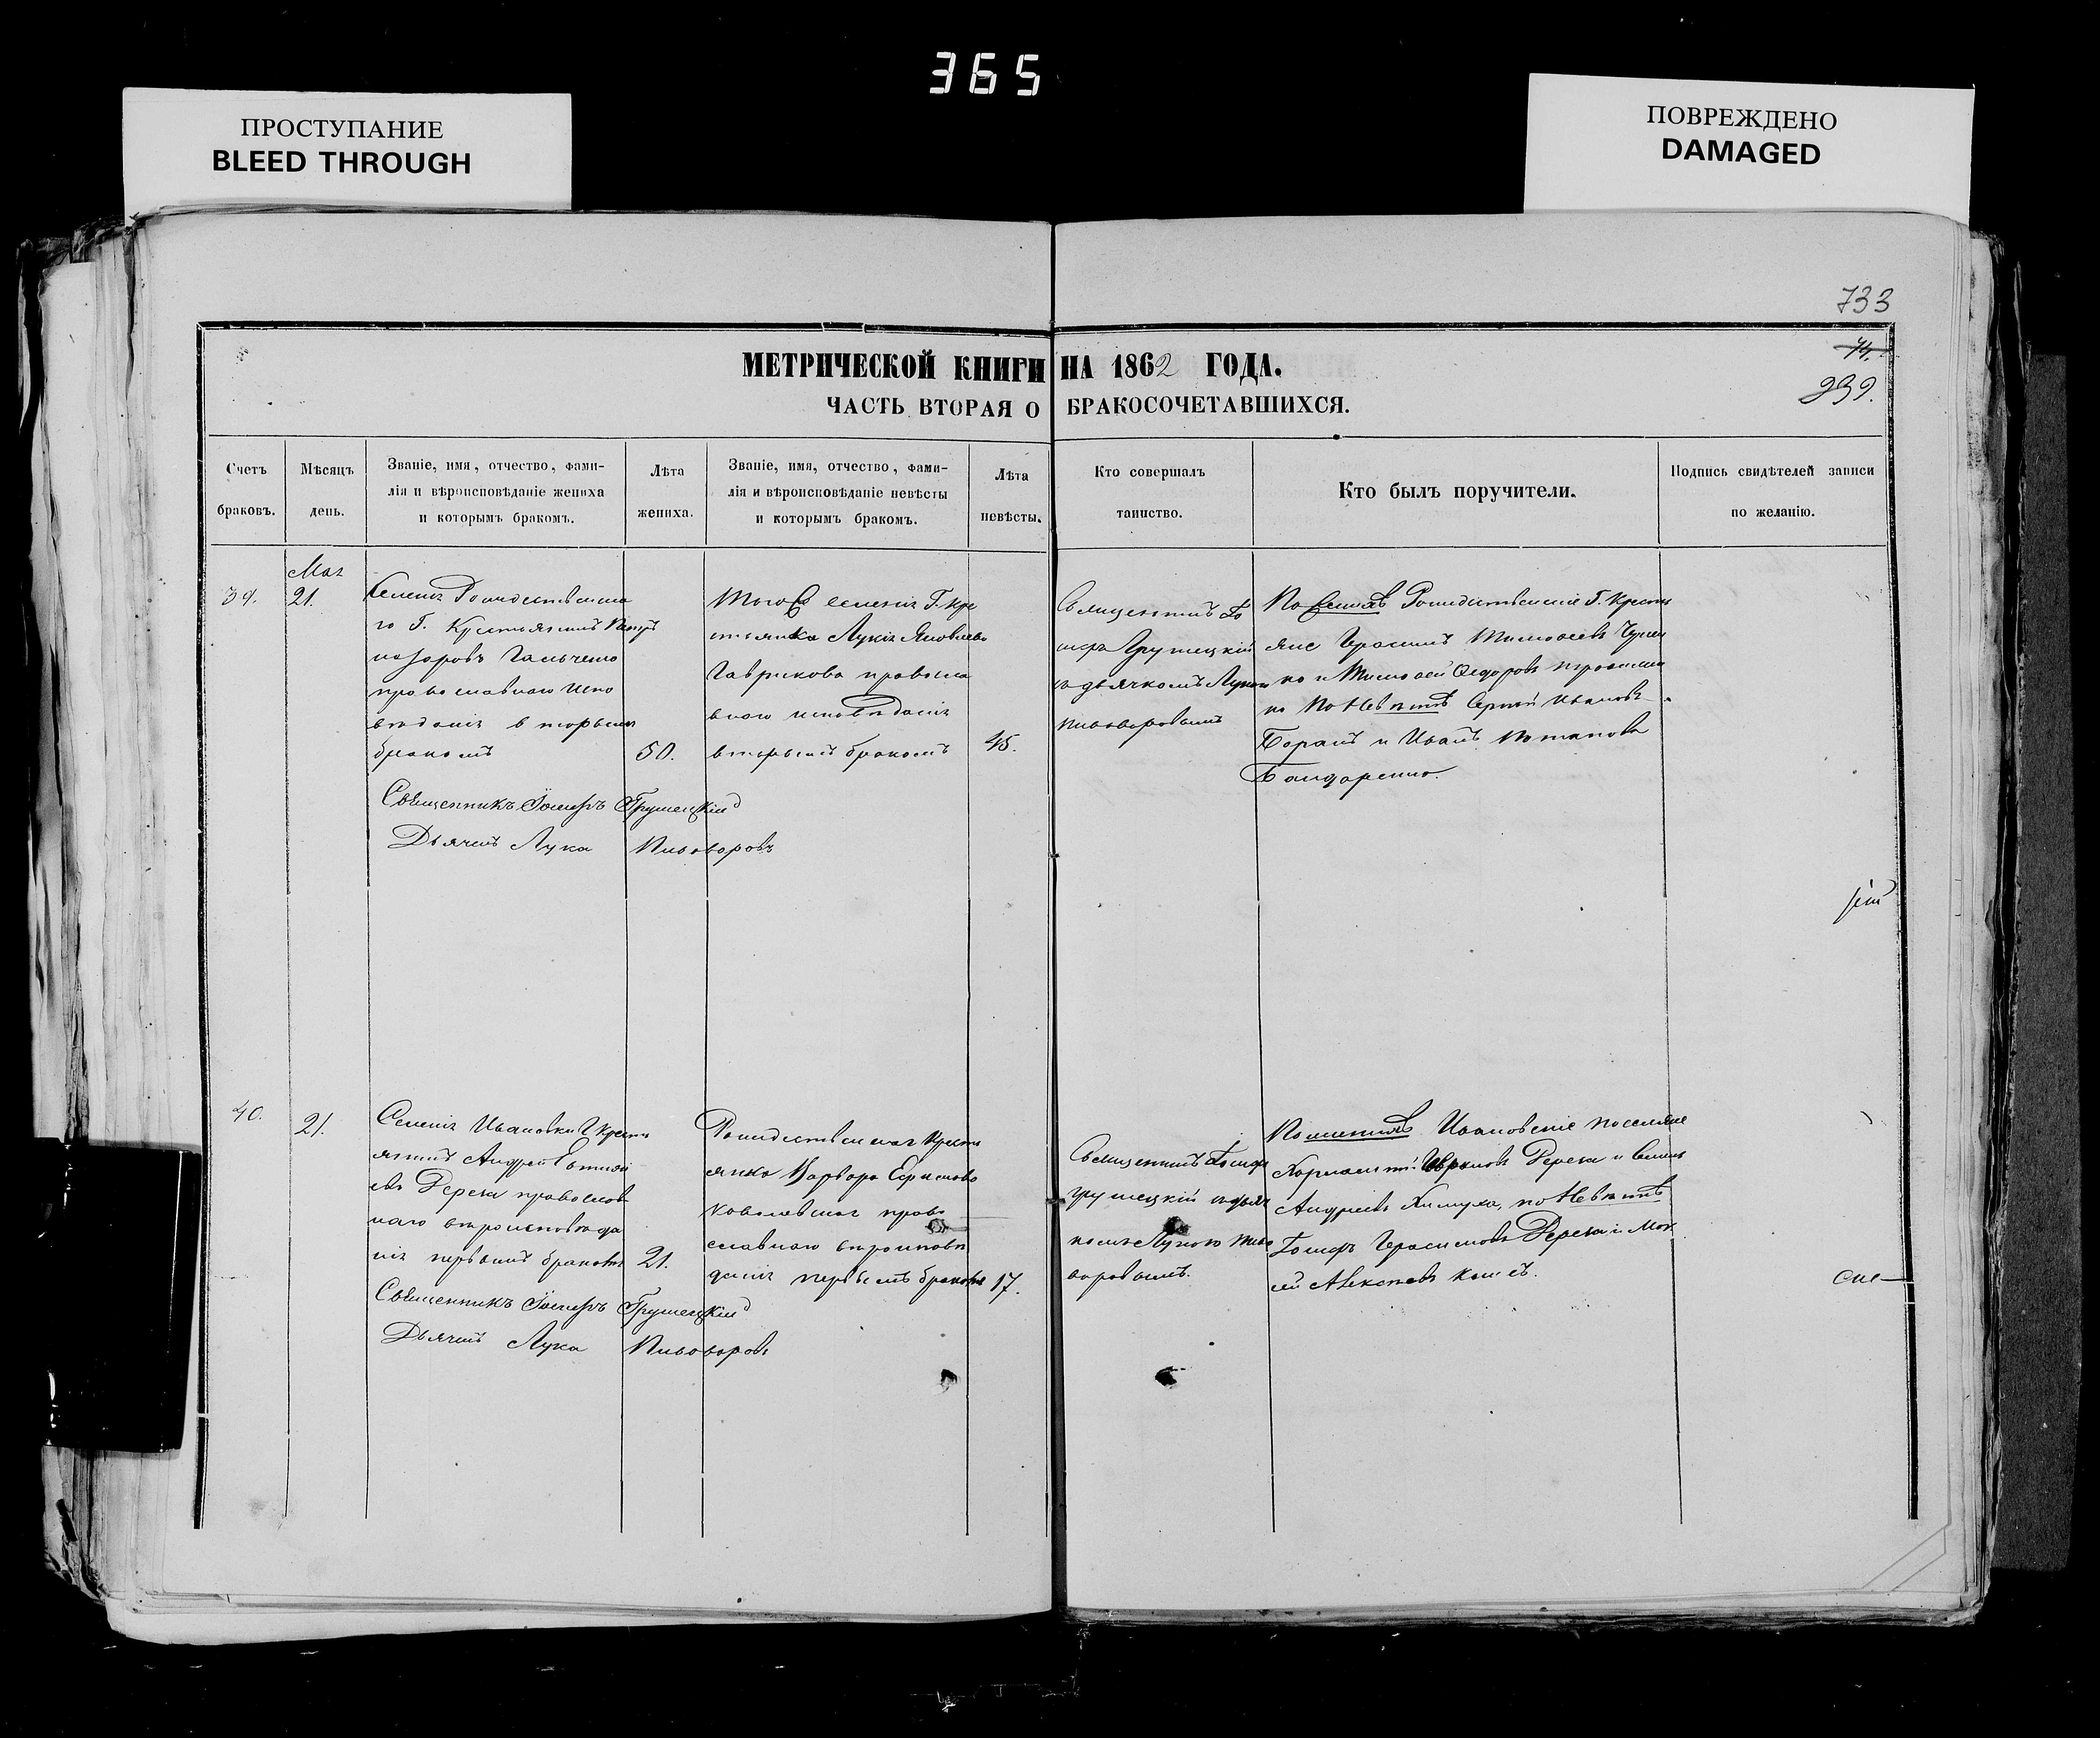 365
ПРОСТУПАНИЕ
BLEED THROUGH
ПОВРЕЖДЕНО
DAMAGED
733
74.
239.
МЕТРИЧЕСКОЙ КНИГИ НА 1862 ГОДА.
ЧАСТЬ ВТОРАЯ О БРАКОСОЧЕТАВШИХСЯ.
Счетъ
браковъ.
Мѣсяцъ
день.
Званіе, имя, отчество, фами-
лія и вѣроисповѣданіе жениха
и которымъ бракомъ.
Лѣта
жениха.
Званіе, имя, отчество, фами-
лія и вѣроисповѣданіе невѣсты
и которымъ бракомъ.
Лѣта
невѣсты.
Кто совершалъ
таинство.
Кто былъ поручители.
Подпись свидѣтелей записи
по желанію.
39.
Мая
21.
Селенія Рождественска
го Г. Крестьянинъ Петръ
Назаровъ Гальченко
православнаго испо
веданія вторымъ
бракомъ
50.
Того селенія Г. Кре
стьянка Лукія Яковлева
Гаврикова правосла
внаго исповѣданія
вторымъ бракомъ
45.
Священникъ Іо
сифъ Грушецкій
съ дьячкомъ Лукою
Пивоваровымъ
По женихѣ Рождественскіе Г. Кресть
яне Герасимъ Тимоѳеевъ
но и Тимоѳей Ѳедоровъ
по Невѣстѣ Сергей Ивановъ
Баранъ и Иванъ Потаповъ
Бондаренко.
Священникъ Іосифъ Грушецкій
Дьячекъ Лука Пивоваровъ
40.
21.
Селенія Ивановки Кресть
янинъ Андрей Евтихі
евъ Дерека православ
наго вѣроисповѣда
нія первымъ бракомъ
21.
Рождественская Кресть
янка Варвара Ефимова
Ковалевская право
славнаго вѣроисповѣ
данія первымъ бракомъ
17.
Священникъ Іосифъ
Грушецкій съ дьяч
комъ Лукою Пиво
варовымъ.
По женихѣ Ивановскіе поселяне
Дерека и
Андреевъ по Невѣстѣ
Іосифъ Герасимовъ Дерека и Мои
сей Алексеевъ
Священникъ Іосифъ Грушецкій
Дьячекъ Лука Пивоваровъ